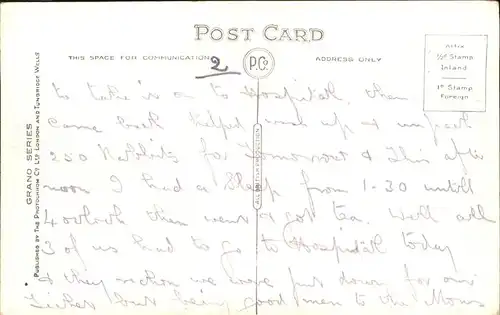 POST CARD
THIS SPACE FOR COMMUNICATION
ADDRESS ONLY
P.Co
2
Affix
½d Stamp
Inland
1d Stamp
Foreign
GRAND SERIES
PUBLISHED BY THE PHOTOCHROM CO. LTD LONDON AND TUNBRIDGE WELLS
to take is on to Hospital. then
came back helped up at unpack
250 Rabbits for Tomorrow & This after
noon I had a sleep from 1-30 untill
4 oclock then went & got tea. Well all
3 of us had to go to Hospital today
& they we were put down for our
Ticket but being good men to the